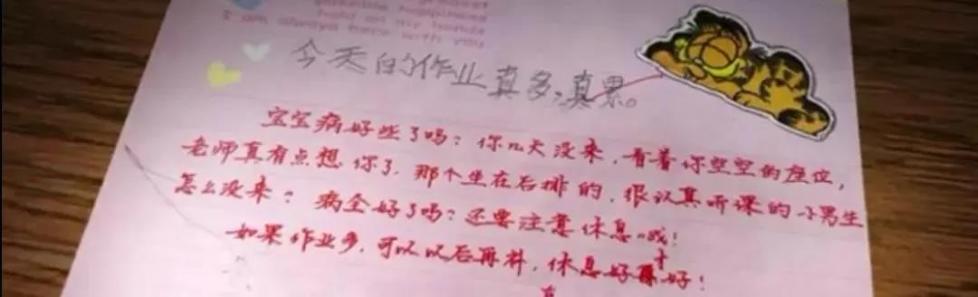 hold on my hands
I am always here with you
今天的作业真多,真累。
宝宝病好些了吗?你几天没来,看着你空空的座位,
老师真有点想你了,那个坐在后排的,很认真听课的小男生
怎么没来?病全好了吗?还要注意休息哦!
如果作业多,可以以后再补,休息好才好!